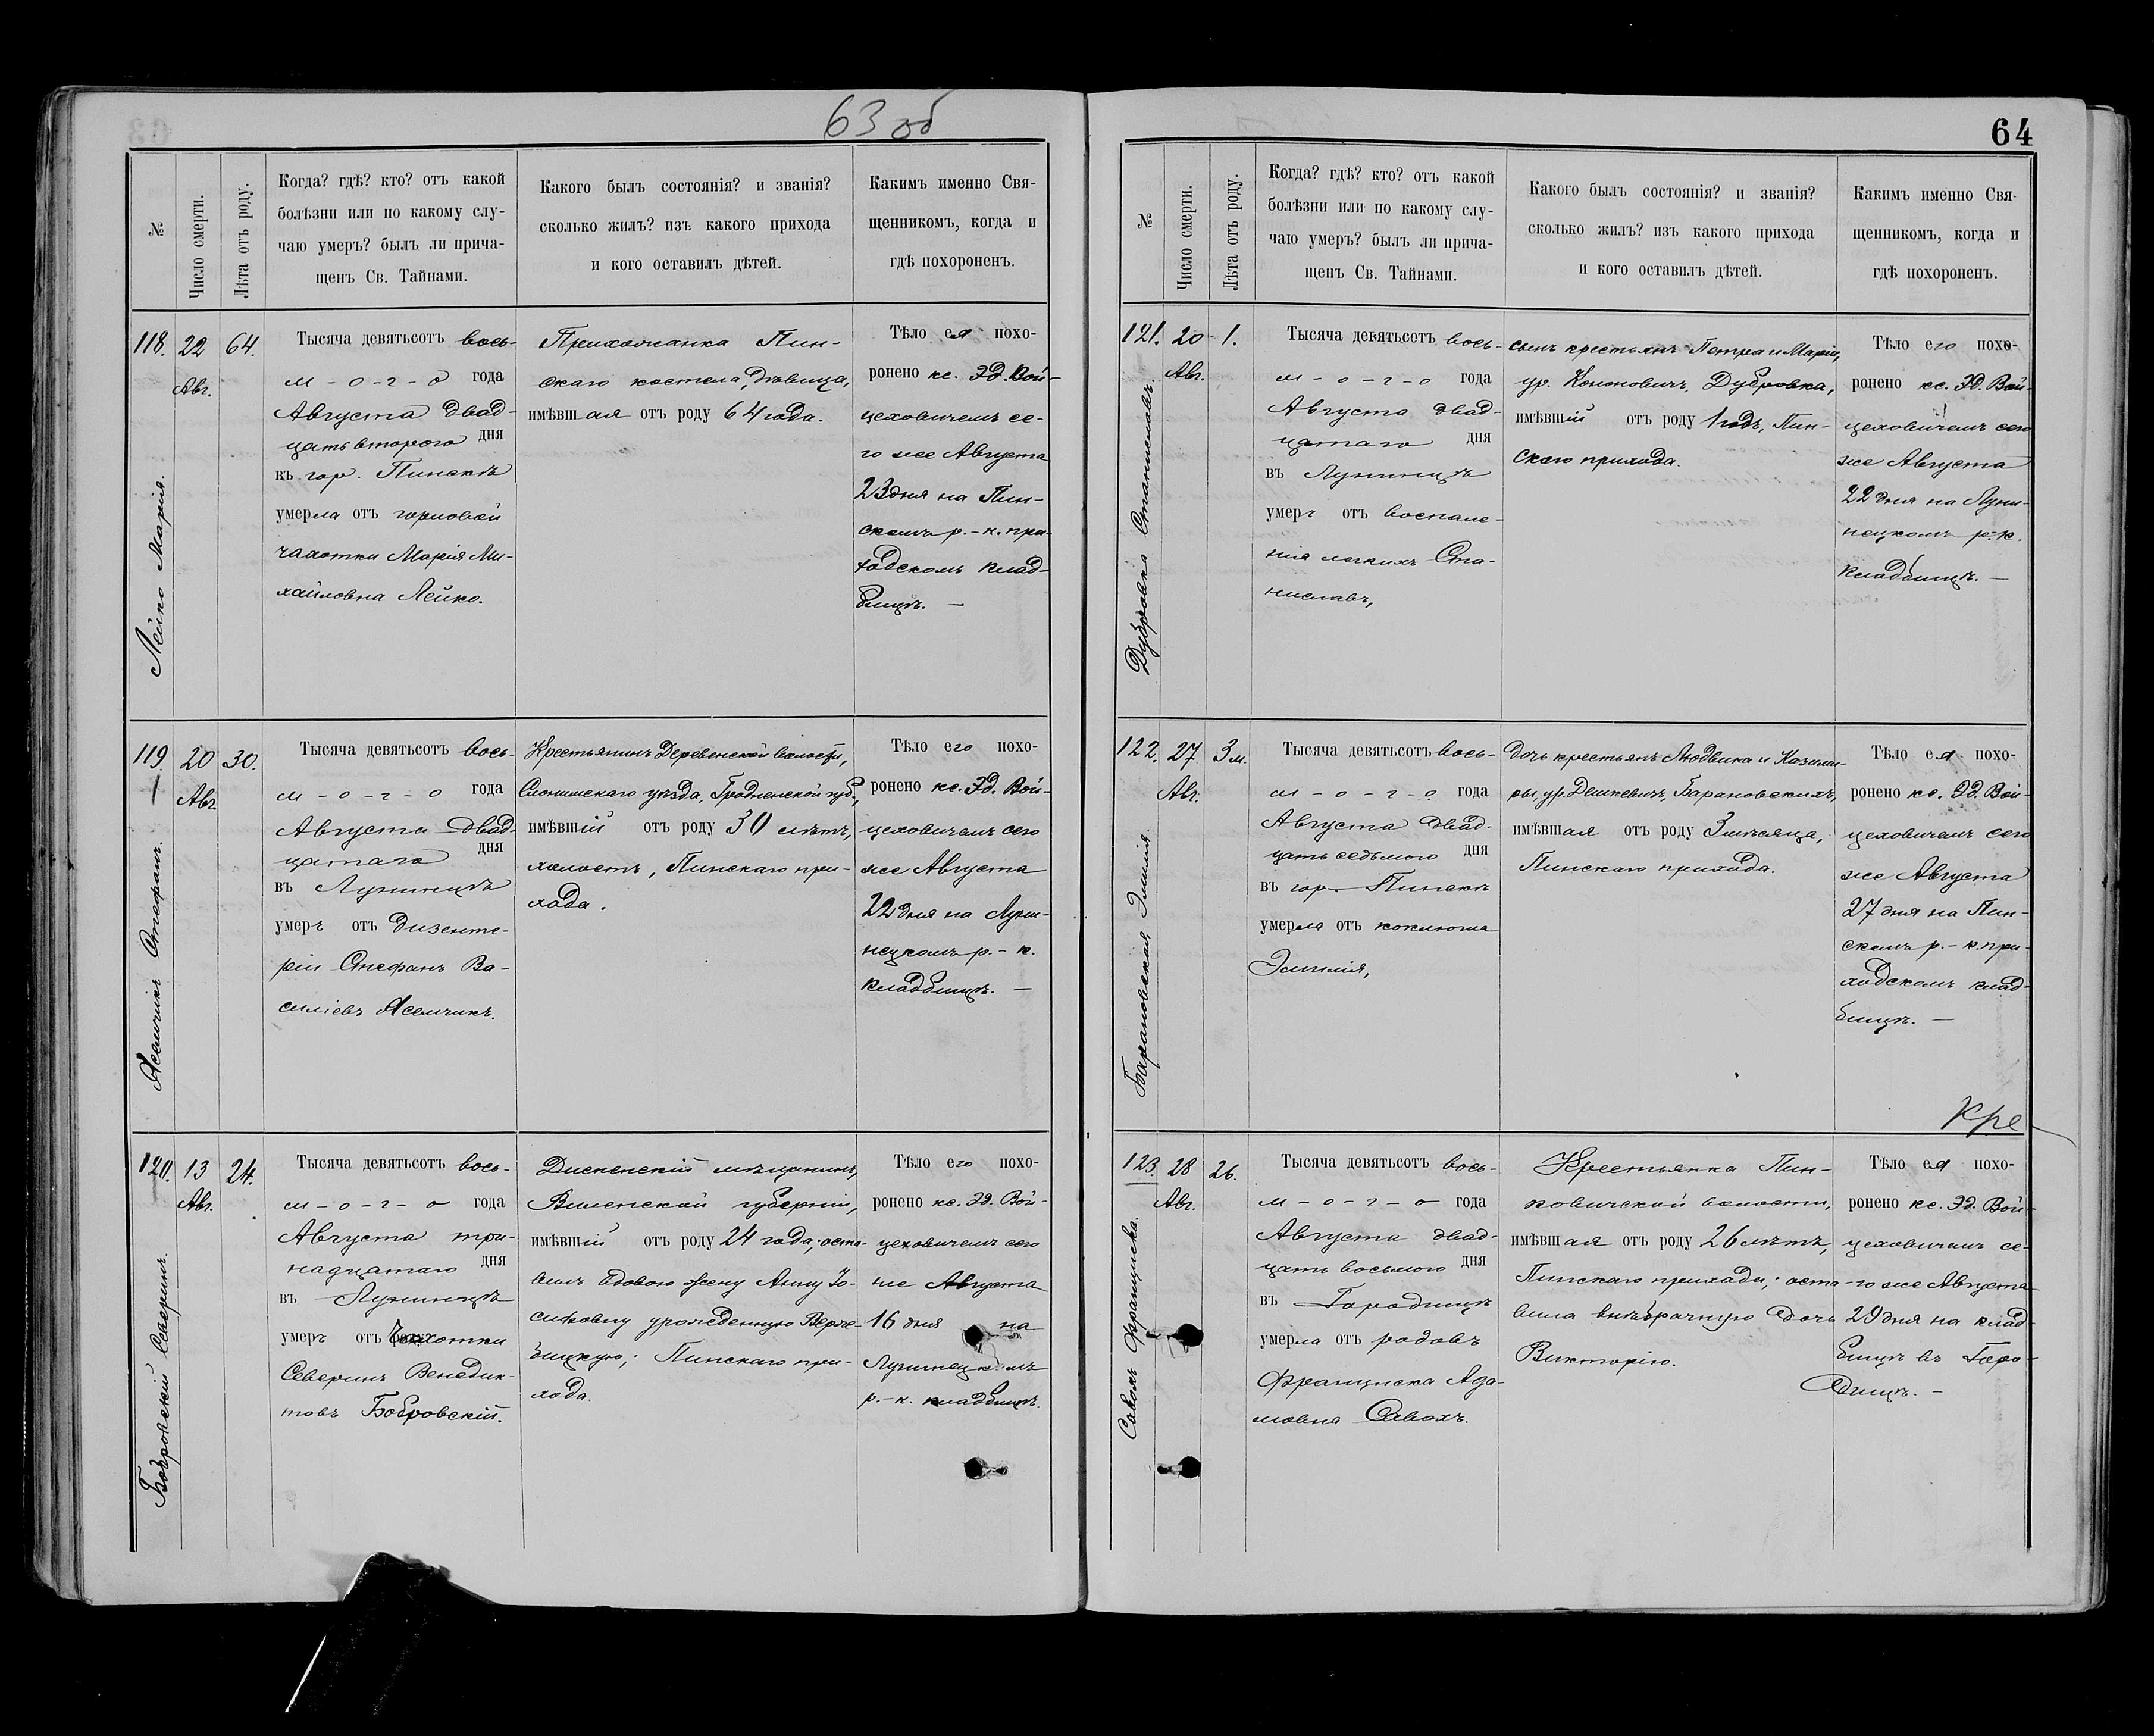 63 об
№
Число смерти.
Лѣта отъ роду.
Когда? гдѣ? кто? отъ какой
болѣзни или по какому слу-
чаю умеръ? былъ ли прича-
щенъ Св. Тайнами.
Какого былъ состоянія? и званія?
сколько жилъ? изъ какого прихода
и кого оставилъ дѣтей.
Какимъ именно Свя-
щенникомъ, когда и
гдѣ похороненъ.
118.
22
Авг.
64.
Лейко Марія.
Тысяча девятьсотъ вось-
м-о-г-о года
Августа двад-
цать втораго дня
въ гор. Пинскѣ
умерла отъ горловой
чахотки Марія Ми-
хайловна Лейко.
Прихожанка Пин-
скаго костела, дѣвица,
имѣвшая отъ роду 64 года.
Тѣло ея похо-
ронено кс. Эд. Вой-
цеховичемъ се-
го же Августа
23 дня на Пин-
скомъ р.-к. при-
ходскомъ клад-
бищѣ. —
119.
20
Авг.
30.
Ясемчикъ Стефанъ.
Тысяча девятьсотъ вось-
м-о-г-о года
Августа двад-
цатаго дня
въ Лунинцѣ
умеръ отъ дизенте-
ріи Стефанъ Ва-
силіевъ Ясемчикъ.
Крестьянинъ Деревенской волости,
Слонимскаго уѣзда, Гродненской губ.,
имѣвшій отъ роду 30 лѣтъ,
холостъ, Пинскаго при-
хода.
Тѣло его похо-
ронено кс. Эд. Вой-
цеховичемъ сего
же Августа
22 дня на Луни-
нецкомъ р.-к.
кладбищѣ. —
120.
13
Авг.
24.
Бобровскій Северинъ.
Тысяча девятьсотъ вось-
м-о-г-о года
Августа три-
надцатаго дня
въ Лунинцѣ
умеръ отъ чахотки
Северинъ Венедик-
товъ Бобровскій.
Дисненскій мѣщанинъ,
Виленской губерніи,
имѣвшій отъ роду 24 года; оста-
вилъ вдовою жену Анну Іо-
сифовну урожденную
Пинскаго при-
хода.
Тѣло его похо-
ронено кс. Эд. Вой-
цеховичемъ сего
же Августа
16 дня на
Лунинецкомъ
р.-к. кладбищѣ.
64
№
Число смерти.
Лѣта отъ роду.
Когда? гдѣ? кто? отъ какой
болѣзни или по какому слу-
чаю умеръ? былъ ли прича-
щенъ Св. Тайнами.
Какого былъ состоянія? и званія?
сколько жилъ? изъ какого прихода
и кого оставилъ дѣтей.
Какимъ именно Свя-
щенникомъ, когда и
гдѣ похороненъ.
121.
20
Авг.
1.
Дубровка Станиславъ.
Тысяча девятьсотъ вось-
м-о-г-о года
Августа двад-
цатаго дня
въ Лунинцѣ
умеръ отъ воспале-
нія легкихъ Ста-
ниславъ,
сынъ крестьянъ Петра и Маріи,
ур. Кононовичъ, Дубровка,
имѣвшій отъ роду 1 годъ, Пин-
скаго прихода.
Тѣло его похо-
ронено кс. Эд. Вой-
цеховичемъ сего
же Августа
22 дня на Луни-
нецкомъ р.-к.
кладбищѣ. —
122.
27
Авг.
3 м.
Барановская Эмилія.
Тысяча девятьсотъ вось-
м-о-г-о года
Августа двад-
цать седьмого дня
въ гор. Пинскѣ
умерла отъ коклюша
Эмилія,
дочь крестьянъ Людвика и Казими-
ры, ур. Дешкевичъ, Барановскихъ,
имѣвшая отъ роду 3 мѣсяца,
Пинскаго прихода.
Тѣло ея похо-
ронено кс. Эд. Вой-
цеховичемъ сего
же Августа
27 дня на Пин-
скомъ р.-к. при-
ходскомъ клад-
бищѣ. —
Кре
123.
28
Авг.
26.
Савохъ Франциска.
Тысяча девятьсотъ вось-
м-о-г-о года
Августа двад-
цать восьмого дня
въ Городищѣ
умерла отъ родовъ
Франциска Ада-
мовна Савохъ.
Крестьянка Пин-
ковичской волости,
имѣвшая отъ роду 26 лѣтъ,
Пинскаго прихода; оста-
вила внѣбрачную дочь
Викторію.
Тѣло ея похо-
ронено кс. Эд. Вой-
цеховичемъ се-
го же Августа
29 дня на клад-
бищѣ въ Горо-
дищѣ. —